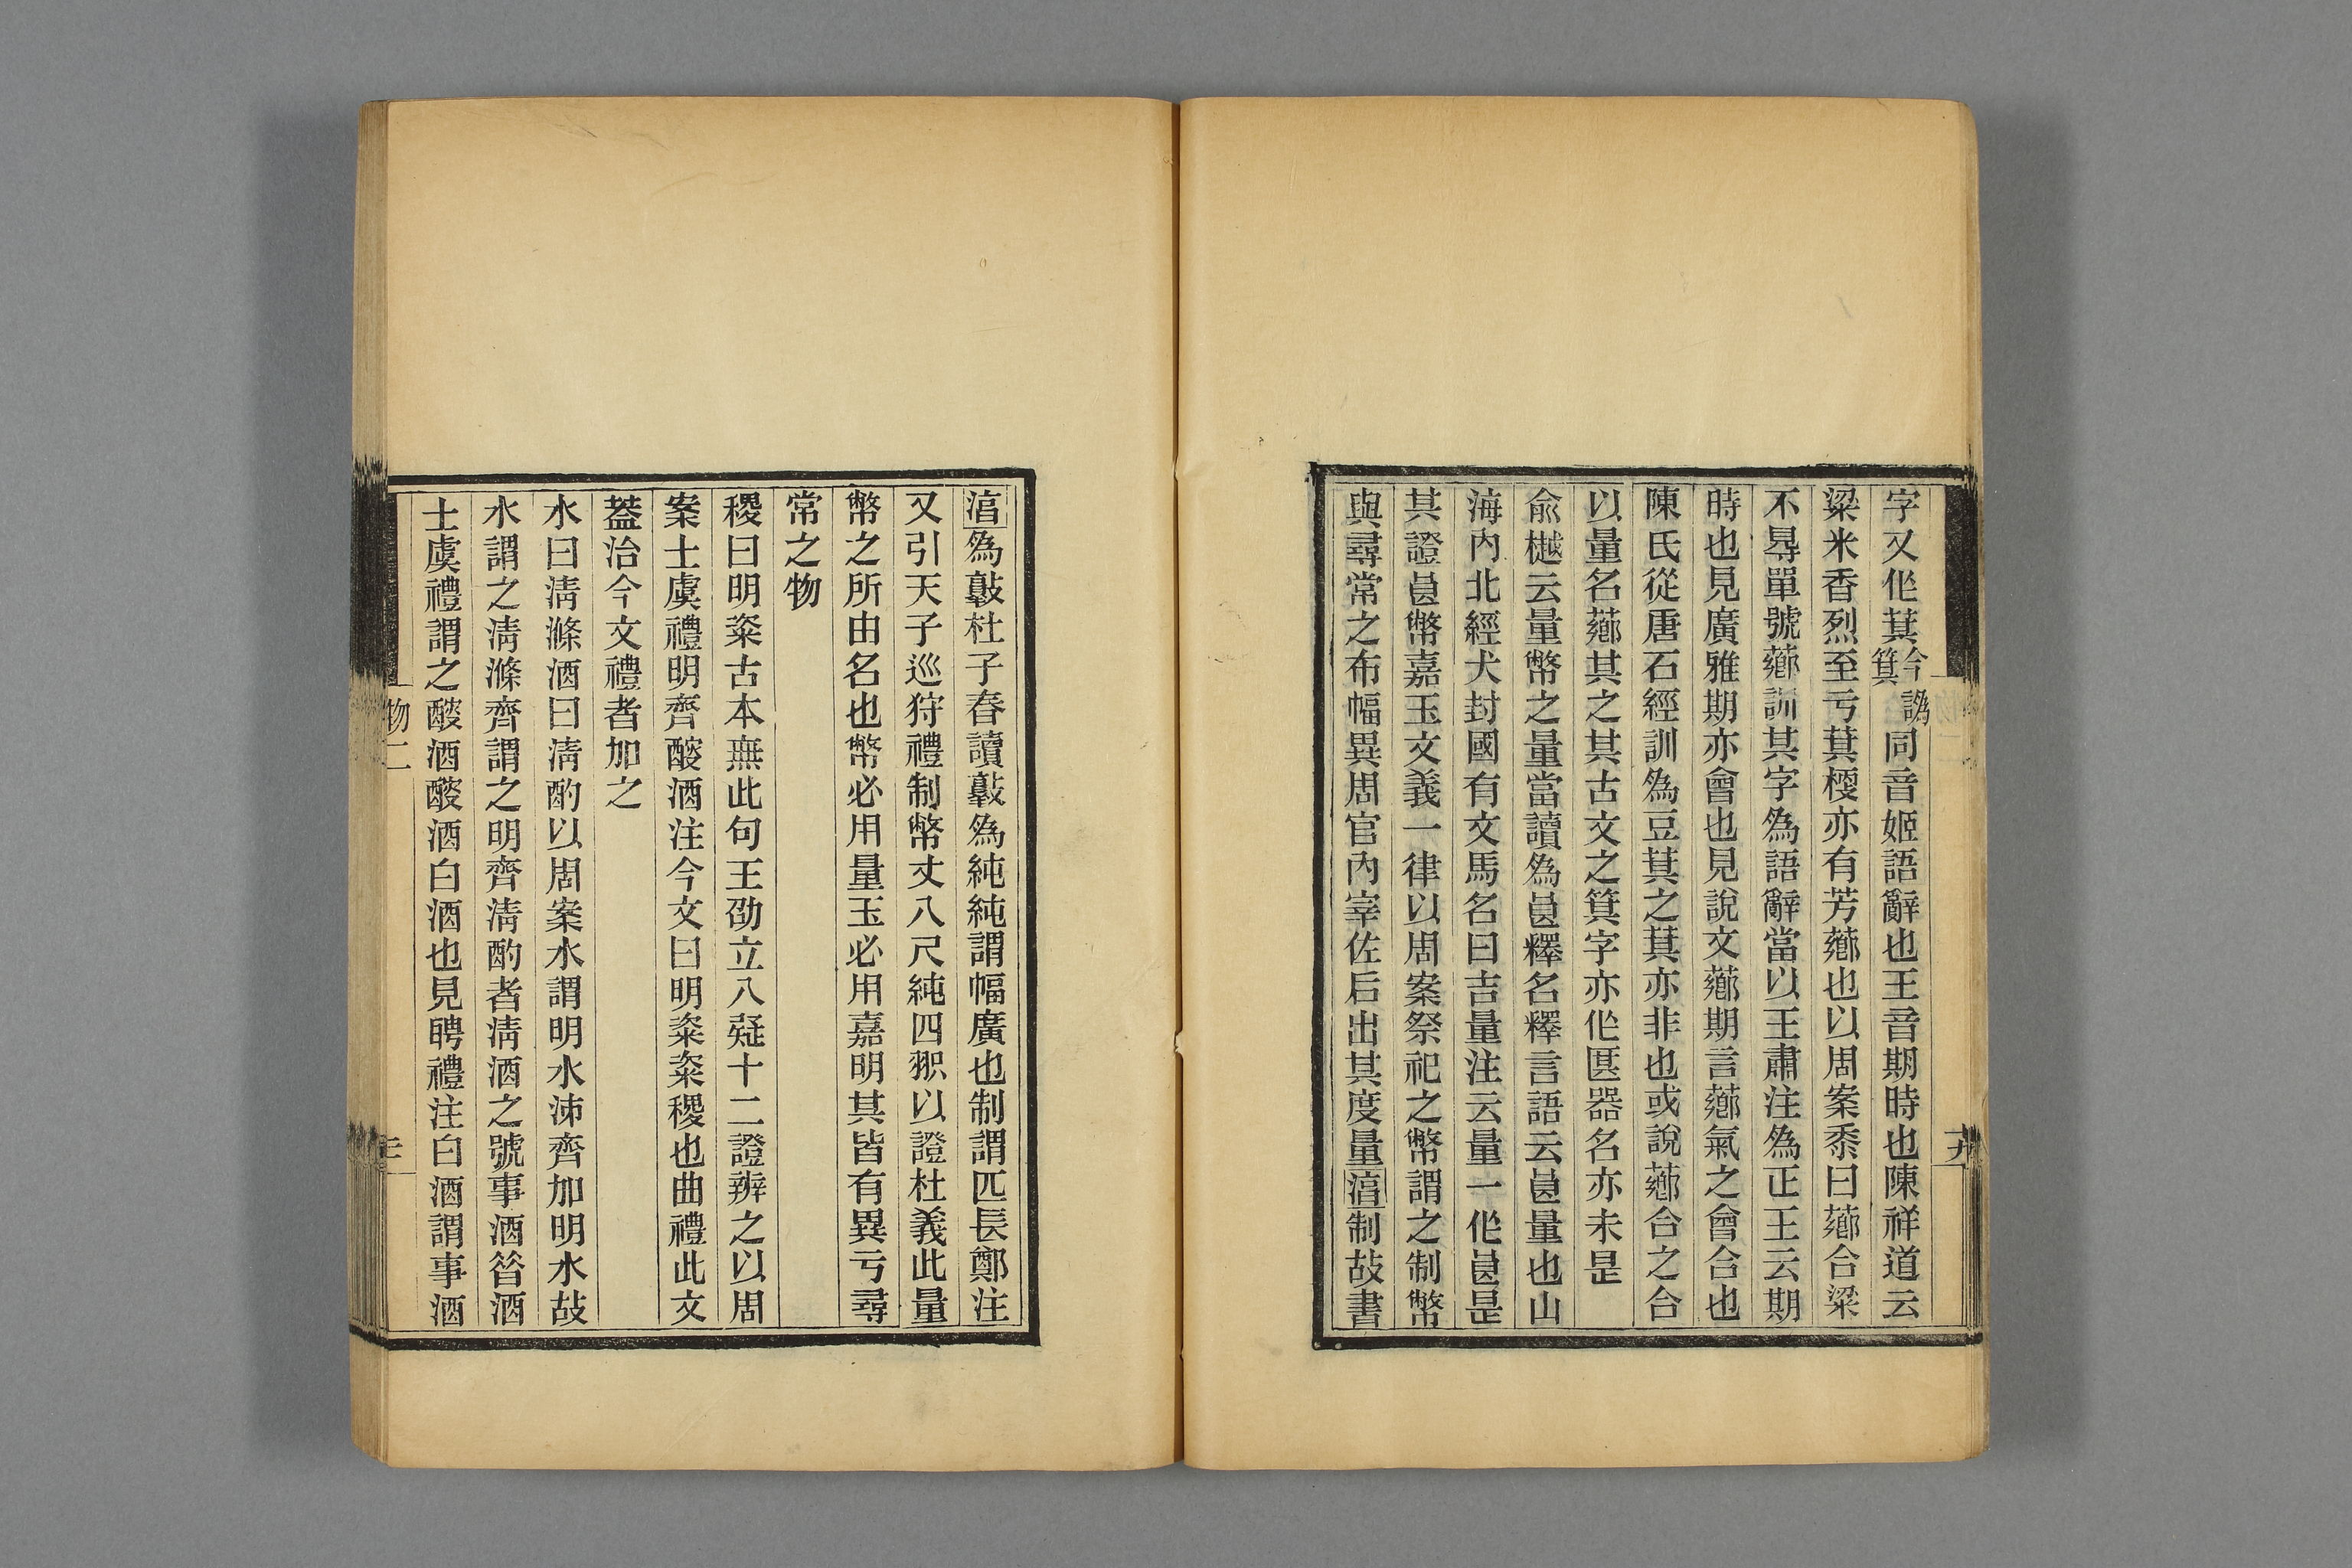 字又作萁今譌箕同音姬語辭也王音期時也陳祥道云
粱米香烈至亏萁稷亦有芳薌也以周案黍曰薌合粱
不㝵單號薌訓其字爲語辭當以王肅注爲正王云期
時也見廣雅期亦會也見說文薌期言薌氣之會合也
陳氏從唐石經訓爲豆萁之萁亦非也或說薌合之合
以量名薌其之其古文之箕字亦作匩器名亦未是
俞樾云量幣之量當讀爲㫗釋名釋言語云㫗量也山
海內北經犬封國有文馬名曰吉量注云量一作㫗是
其證㫗幣嘉玉文義一律以周案祭祀之幣謂之制幣
與尋常之布幅異周官內宰佐后出其度量淳制故書
淳爲敦杜子春讀敦爲純純謂幅廣也制謂匹長鄭注
又引天子巡狩禮制幣丈八尺純四㣊以證杜義此量
幣之所由名也幣必用量玉必用嘉明其皆有異亏尋
常之物
稷曰明粢古本無此句王劭立八疑十二證辨之以周
案士虞禮明齊醙酒注今文曰明粢粢稷也曲禮此文
葢治今文禮者加之
水曰淸滌酒曰淸酌以周案水謂明水泲齊加明水故
水謂之淸滌齊謂之明齊淸酌者淸酒之號事酒昝酒
士虞禮謂之醙酒醙酒白酒也見聘禮注白酒謂事酒
物二
十九